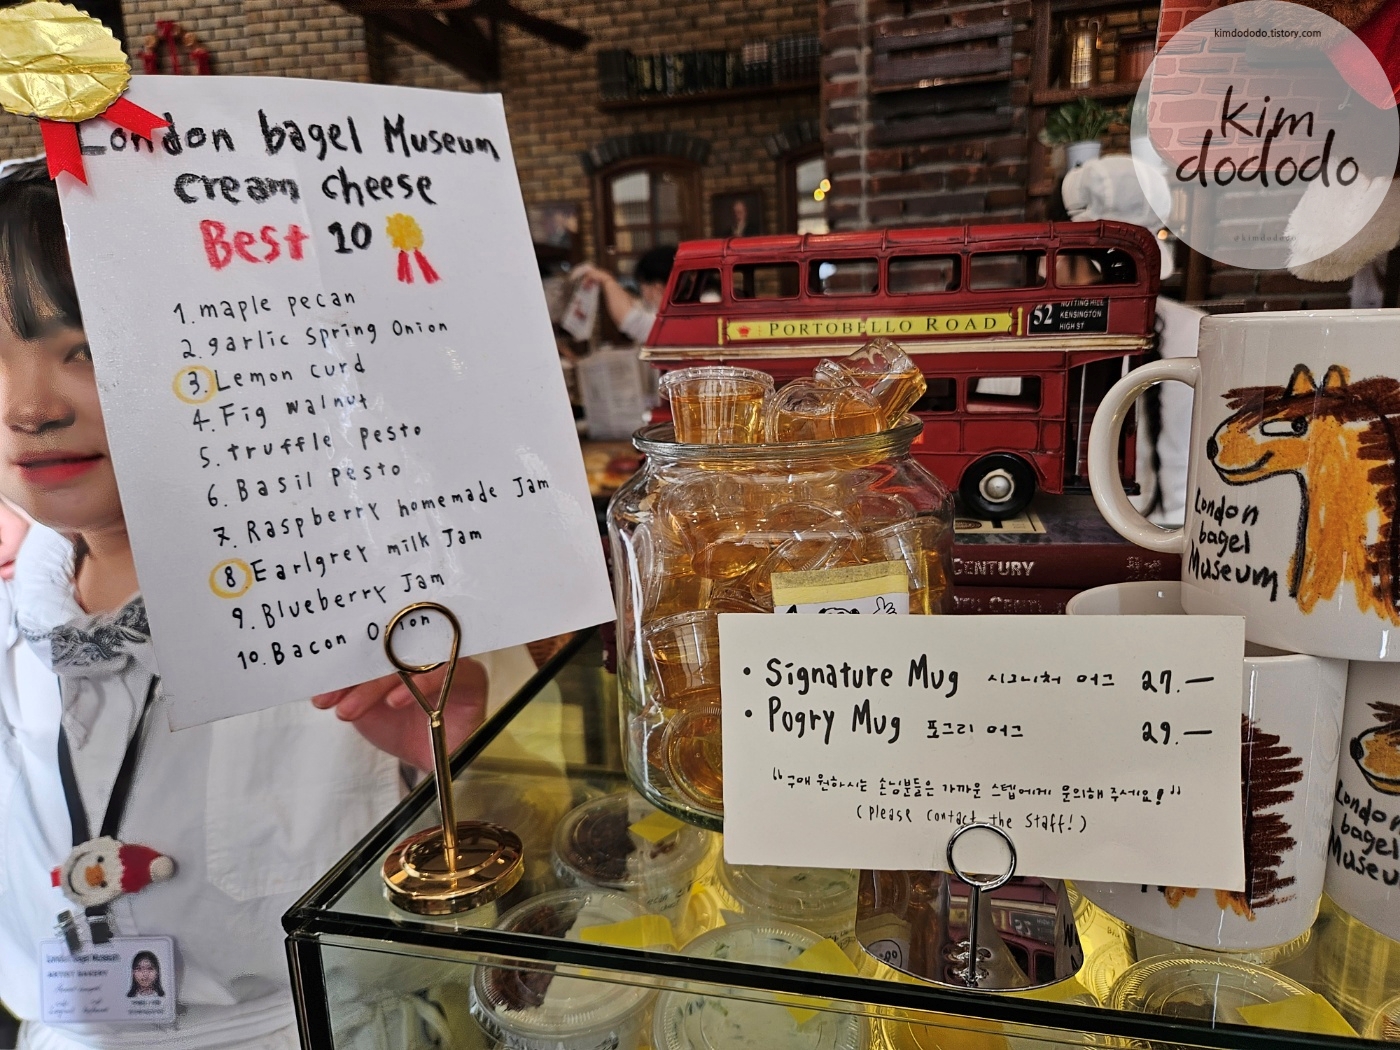 London bagel Museum
cream cheese
Best 10
1. maple pecan
2. garlic spring Onion
3. Lemon curd
4. Fig walnut
5. truffle pesto
6. Basil pesto
7. Raspberry homemade Jam
8 Earlgrey milk Jam
9. Blueberry Jam
10. Bacon Onion
kimdododo.tistory.com
kim
dododo
@kimdododo
PORTOBELLO ROAD
52
NOTTING HILL
KENSINGTON
HIGH ST
CENTURY
London
bagel
Museum
• Signature Mug 시그니처 머그 27.—
• Pogry Mug 포그리 머그 29.—
"구매 원하시는 손님분들은 가까운 스텝에게 문의해 주세요!"
(Please contact the Staff!)
London
bagel
Museu
London Bagel Museum
ARTIST BAKERY